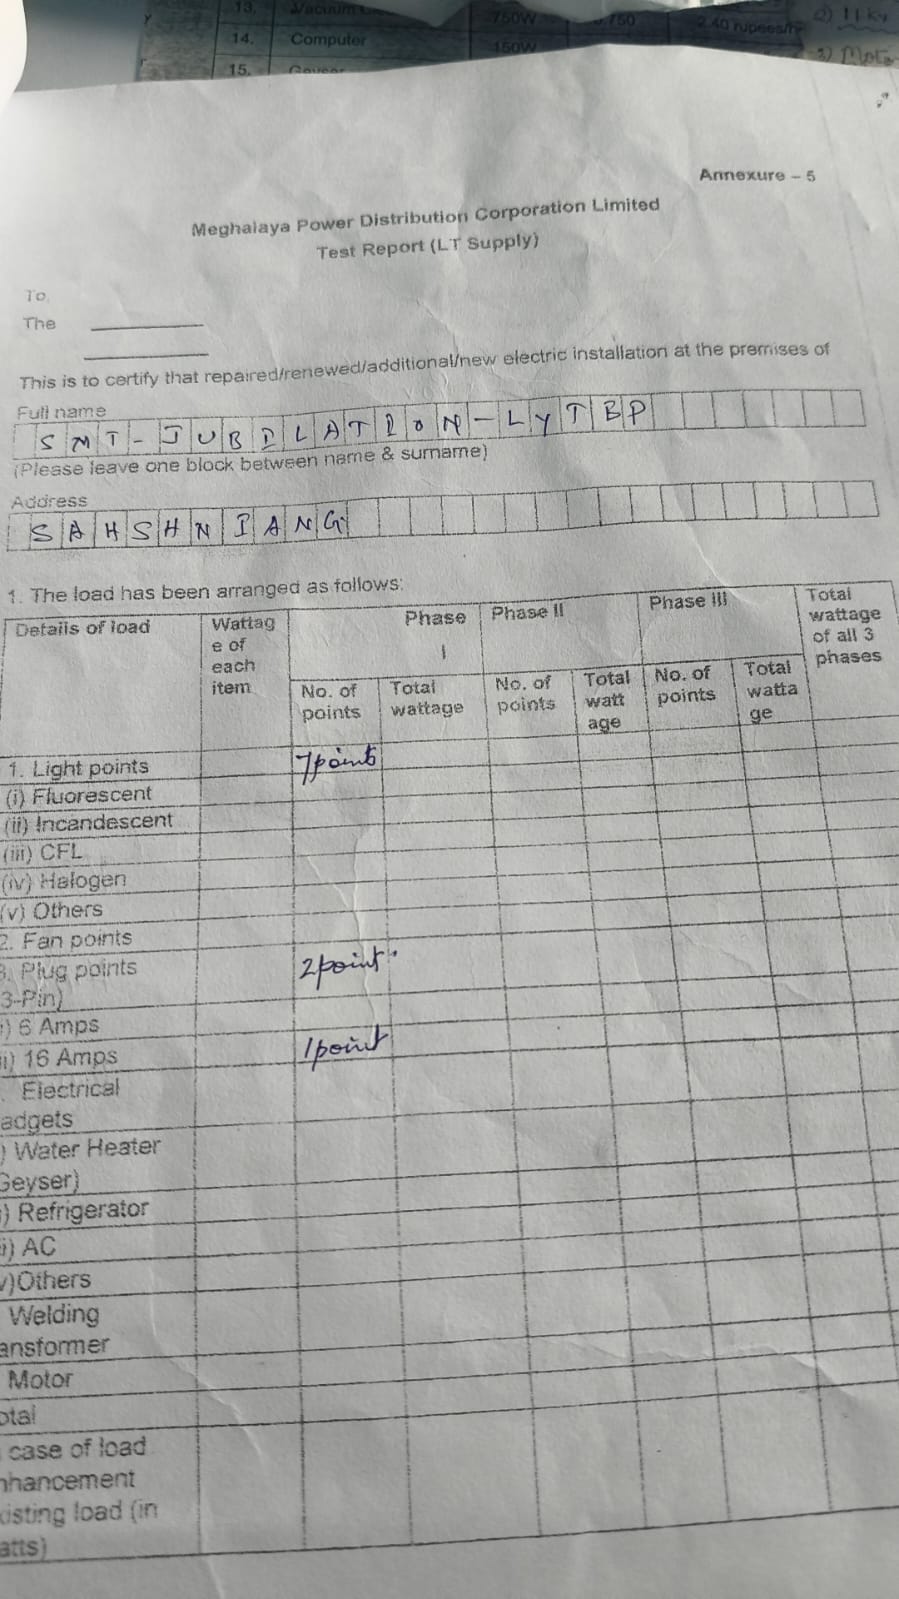 13. Vacuum 750W 0.750 2.40 rupees/h 2) 11 kv
14. Computer 150W
15. Geyser
Annexure – 5
Meghalaya Power Distribution Corporation Limited
Test Report (LT Supply)
To,
The
This is to certify that repaired/renewed/additional/new electric installation at the premises of
Full name
SMT-JUBILATION-LYTBP
(Please leave one block between name & surname)
Address
SAHSHNIANG
1. The load has been arranged as follows:
Details of load Wattag e of each item Phase I Phase II Phase III Total wattage of all 3 phases
No. of points Total wattage No. of points Total watt age No. of points Total watta ge
1. Light points 7 points
(i) Fluorescent
(ii) Incandescent
(iii) CFL
(iv) Halogen
(v) Others
2. Fan points
3. Plug points 2 point.
3-Pin)
i) 6 Amps
ii) 16 Amps 1 point
Electrical
adgets
) Water Heater
Geyser)
i) Refrigerator
i) AC
v)Others
Welding
ansformer
Motor
otal
case of load
nhancement
xisting load (in
atts)